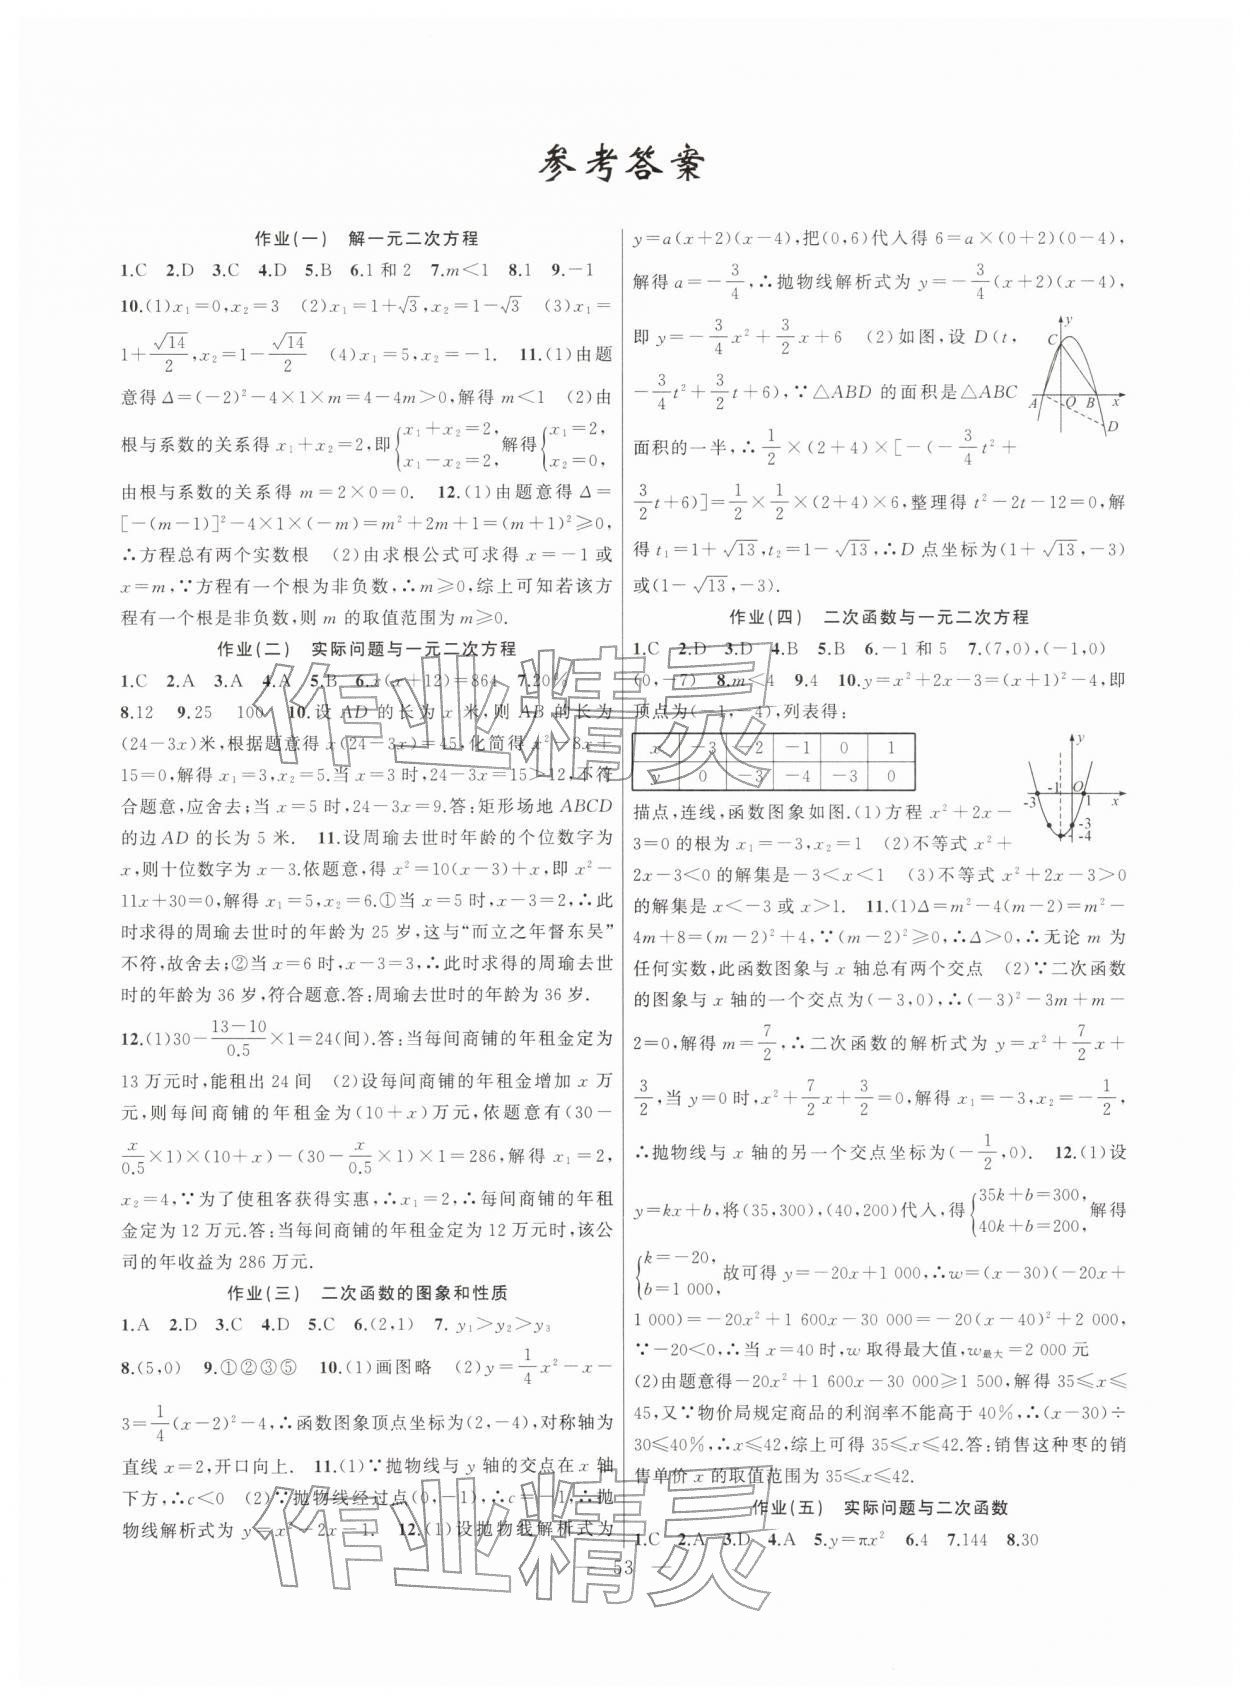 参考答案
作业(一) 解一元二次方程
1.C 2.D 3.C 4.D 5.B 6.1和2 7.m<1 8.1 9.-1
10.(1)x₁=0,x₂=3 (2)x₁=1+√3,x₂=1-√3 (3)x₁=
1+√14/2,x₂=1-√14/2 (4)x₁=5,x₂=-1. 11.(1)由题
意得Δ=(-2)²-4×1×m=4-4m>0,解得 m<1 (2)由
根与系数的关系得 x₁+x₂=2,即{x₁+x₂=2, x₁-x₂=2,解得{x₁=2, x₂=0,
由根与系数的关系得 m=2×0=0. 12.(1)由题意得Δ=
[-(m-1)]²-4×1×(-m)=m²+2m+1=(m+1)²≥0,
∴方程总有两个实数根 (2)由求根公式可求得 x=-1或
x=m,∵方程有一个根为非负数,∴m≥0,综上可知若该方
程有一个根是非负数,则 m 的取值范围为m≥0.
作业(二) 实际问题与一元二次方程
1.C 2.A 3.A 4.A 5.B 6.x(x+12)=864 7.20%
8.12 9.25 100 10.设 AD 的长为 x 米,则 AB 的长为
(24-3x)米,根据题意得 x(24-3x)=45,化简得 x²-8x+
15=0,解得 x₁=3,x₂=5.当 x=3时,24-3x=15>12,不符
合题意,应舍去;当 x=5时,24-3x=9.答:矩形场地 ABCD
的边 AD 的长为 5 米. 11.设周瑜去世时年龄的个位数字为
x,则十位数字为 x-3.依题意,得 x²=10(x-3)+x,即 x²-
11x+30=0,解得 x₁=5,x₂=6.①当 x=5时,x-3=2,∴此
时求得的周瑜去世时的年龄为 25 岁,这与“而立之年督东吴”
不符,故舍去;②当 x=6时,x-3=3,∴此时求得的周瑜去世
时的年龄为 36 岁,符合题意.答:周瑜去世时的年龄为 36 岁.
12.(1)30-(13-10)/0.5×1=24(间).答:当每间商铺的年租金定为
13 万元时,能租出 24 间 (2)设每间商铺的年租金增加 x 万
元,则每间商铺的年租金为(10+x)万元,依题意有(30-
x/0.5×1)×(10+x)-(30-x/0.5×1)×1=286,解得 x₁=2,
x₂=4,∵为了使租客获得实惠,∴x₁=2,∴每间商铺的年租
金定为 12 万元.答:当每间商铺的年租金定为 12 万元时,该公
司的年收益为 286 万元.
作业(三) 二次函数的图象和性质
1.A 2.D 3.C 4.D 5.C 6.(2,1) 7. y₁>y₂>y₃
8.(5,0) 9.①②③⑤ 10.(1)画图略 (2)y=1/4x²-x-
3=1/4(x-2)²-4,∴函数图象顶点坐标为(2,-4),对称轴为
直线 x=2,开口向上. 11.(1)∵抛物线与 y 轴的交点在 x 轴
下方,∴c<0 (2)∵抛物线经过点(0,-1),∴c=-1,∴抛
物线解析式为 y=x²-2x-1. 12.(1)设抛物线解析式为
y=a(x+2)(x-4),把(0,6)代入得 6=a×(0+2)(0-4),
解得 a=-3/4,∴抛物线解析式为 y=-3/4(x+2)(x-4),
即 y=-3/4x²+3/2x+6 (2)如图,设 D(t,
-3/4t²+3/2t+6),∵△ABD 的面积是△ABC
面积的一半,∴1/2×(2+4)×[-(-3/4t²+
3/2t+6)]=1/2×1/2×(2+4)×6,整理得 t²-2t-12=0,解
得 t₁=1+√13,t₂=1-√13,∴D 点坐标为(1+√13,-3)
或(1-√13,-3).
y
C
A O B x
D
作业(四) 二次函数与一元二次方程
1.C 2.D 3.D 4.B 5.B 6.-1和5 7.(7,0),(-1,0)
(0,-7) 8.m<4 9.4 10.y=x²+2x-3=(x+1)²-4,即
顶点为(-1,-4),列表得:
x -3 -2 -1 0 1
y 0 -3 -4 -3 0
y
-3 -1 O 1 x
-3
-4
描点,连线,函数图象如图.(1)方程 x²+2x-
3=0 的根为 x₁=-3,x₂=1 (2)不等式 x²+
2x-3<0 的解集是-3<x<1 (3)不等式 x²+2x-3>0
的解集是 x<-3 或 x>1. 11.(1)Δ=m²-4(m-2)=m²-
4m+8=(m-2)²+4,∵(m-2)²≥0,∴Δ>0,∴无论 m 为
任何实数,此函数图象与 x 轴总有两个交点 (2)∵二次函数
的图象与 x 轴的一个交点为(-3,0),∴(-3)²-3m+m-
2=0,解得 m=7/2,∴二次函数的解析式为 y=x²+7/2x+
3/2,当 y=0时,x²+7/2x+3/2=0,解得 x₁=-3,x₂=-1/2,
∴抛物线与 x 轴的另一个交点坐标为(-1/2,0). 12.(1)设
y=kx+b,将(35,300),(40,200)代入,得{35k+b=300, 40k+b=200,解得
{k=-20, b=1 000,故可得 y=-20x+1 000,∴w=(x-30)(-20x+
1 000)=-20x²+1 600x-30 000=-20(x-40)²+2 000,
∵-20<0,∴当 x=40 时,w 取得最大值,w最大=2 000 元
(2)由题意得-20x²+1 600x-30 000≥1 500,解得 35≤x≤
45,又∵物价局规定商品的利润率不能高于 40%,∴(x-30)÷
30≤40%,∴x≤42,综上可得 35≤x≤42.答:销售这种枣的销
售单价 x 的取值范围为 35≤x≤42.
作业(五) 实际问题与二次函数
1.C 2.A 3.D 4.A 5.y=πx² 6.4 7.144 8.30
— 53 —
作业精灵
作业精灵